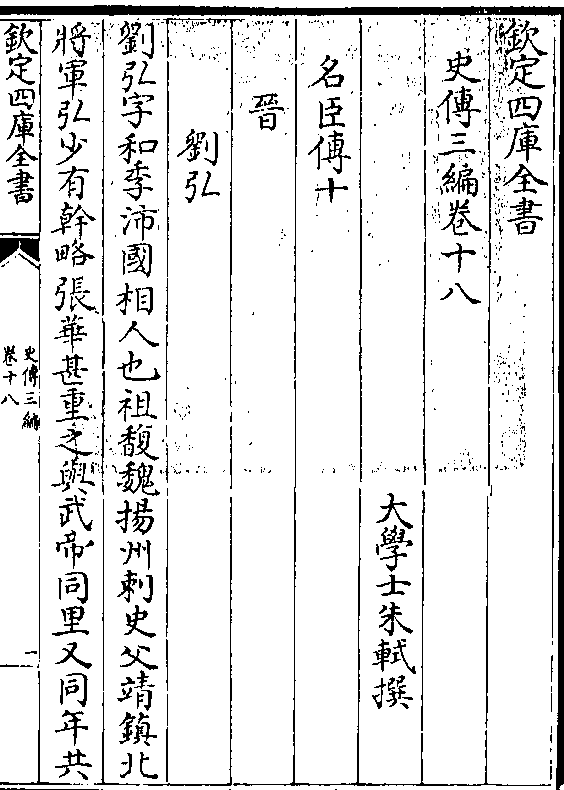 欽定四庫全書
史傳三編卷十八
大學士朱軾撰
名臣傳十
晉
劉弘
劉弘字和季沛國相人也祖馥魏揚州刺史父靖鎮北
將軍弘少有幹略張華甚重之與武帝同里又同年共
欽定四庫全書
史傳三編
卷十八
一